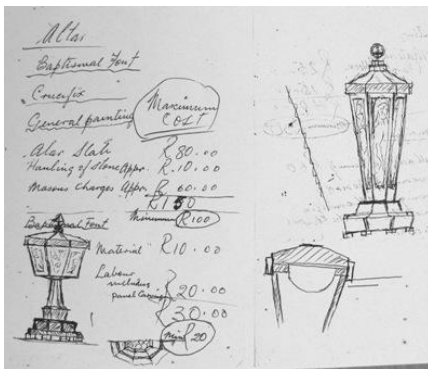 Altar
Baptismal Font
Crucifix
General painting
Maximum
COST
Altar Slate R 80.00
Hauling of stone Appr. R. 10.00
Masons Charges Appr. R 60.00
R150
Minimum R100
Baptismal Font
Material R10.00
Labour
includes
panel Carving
20.00
30.00
Min R 20